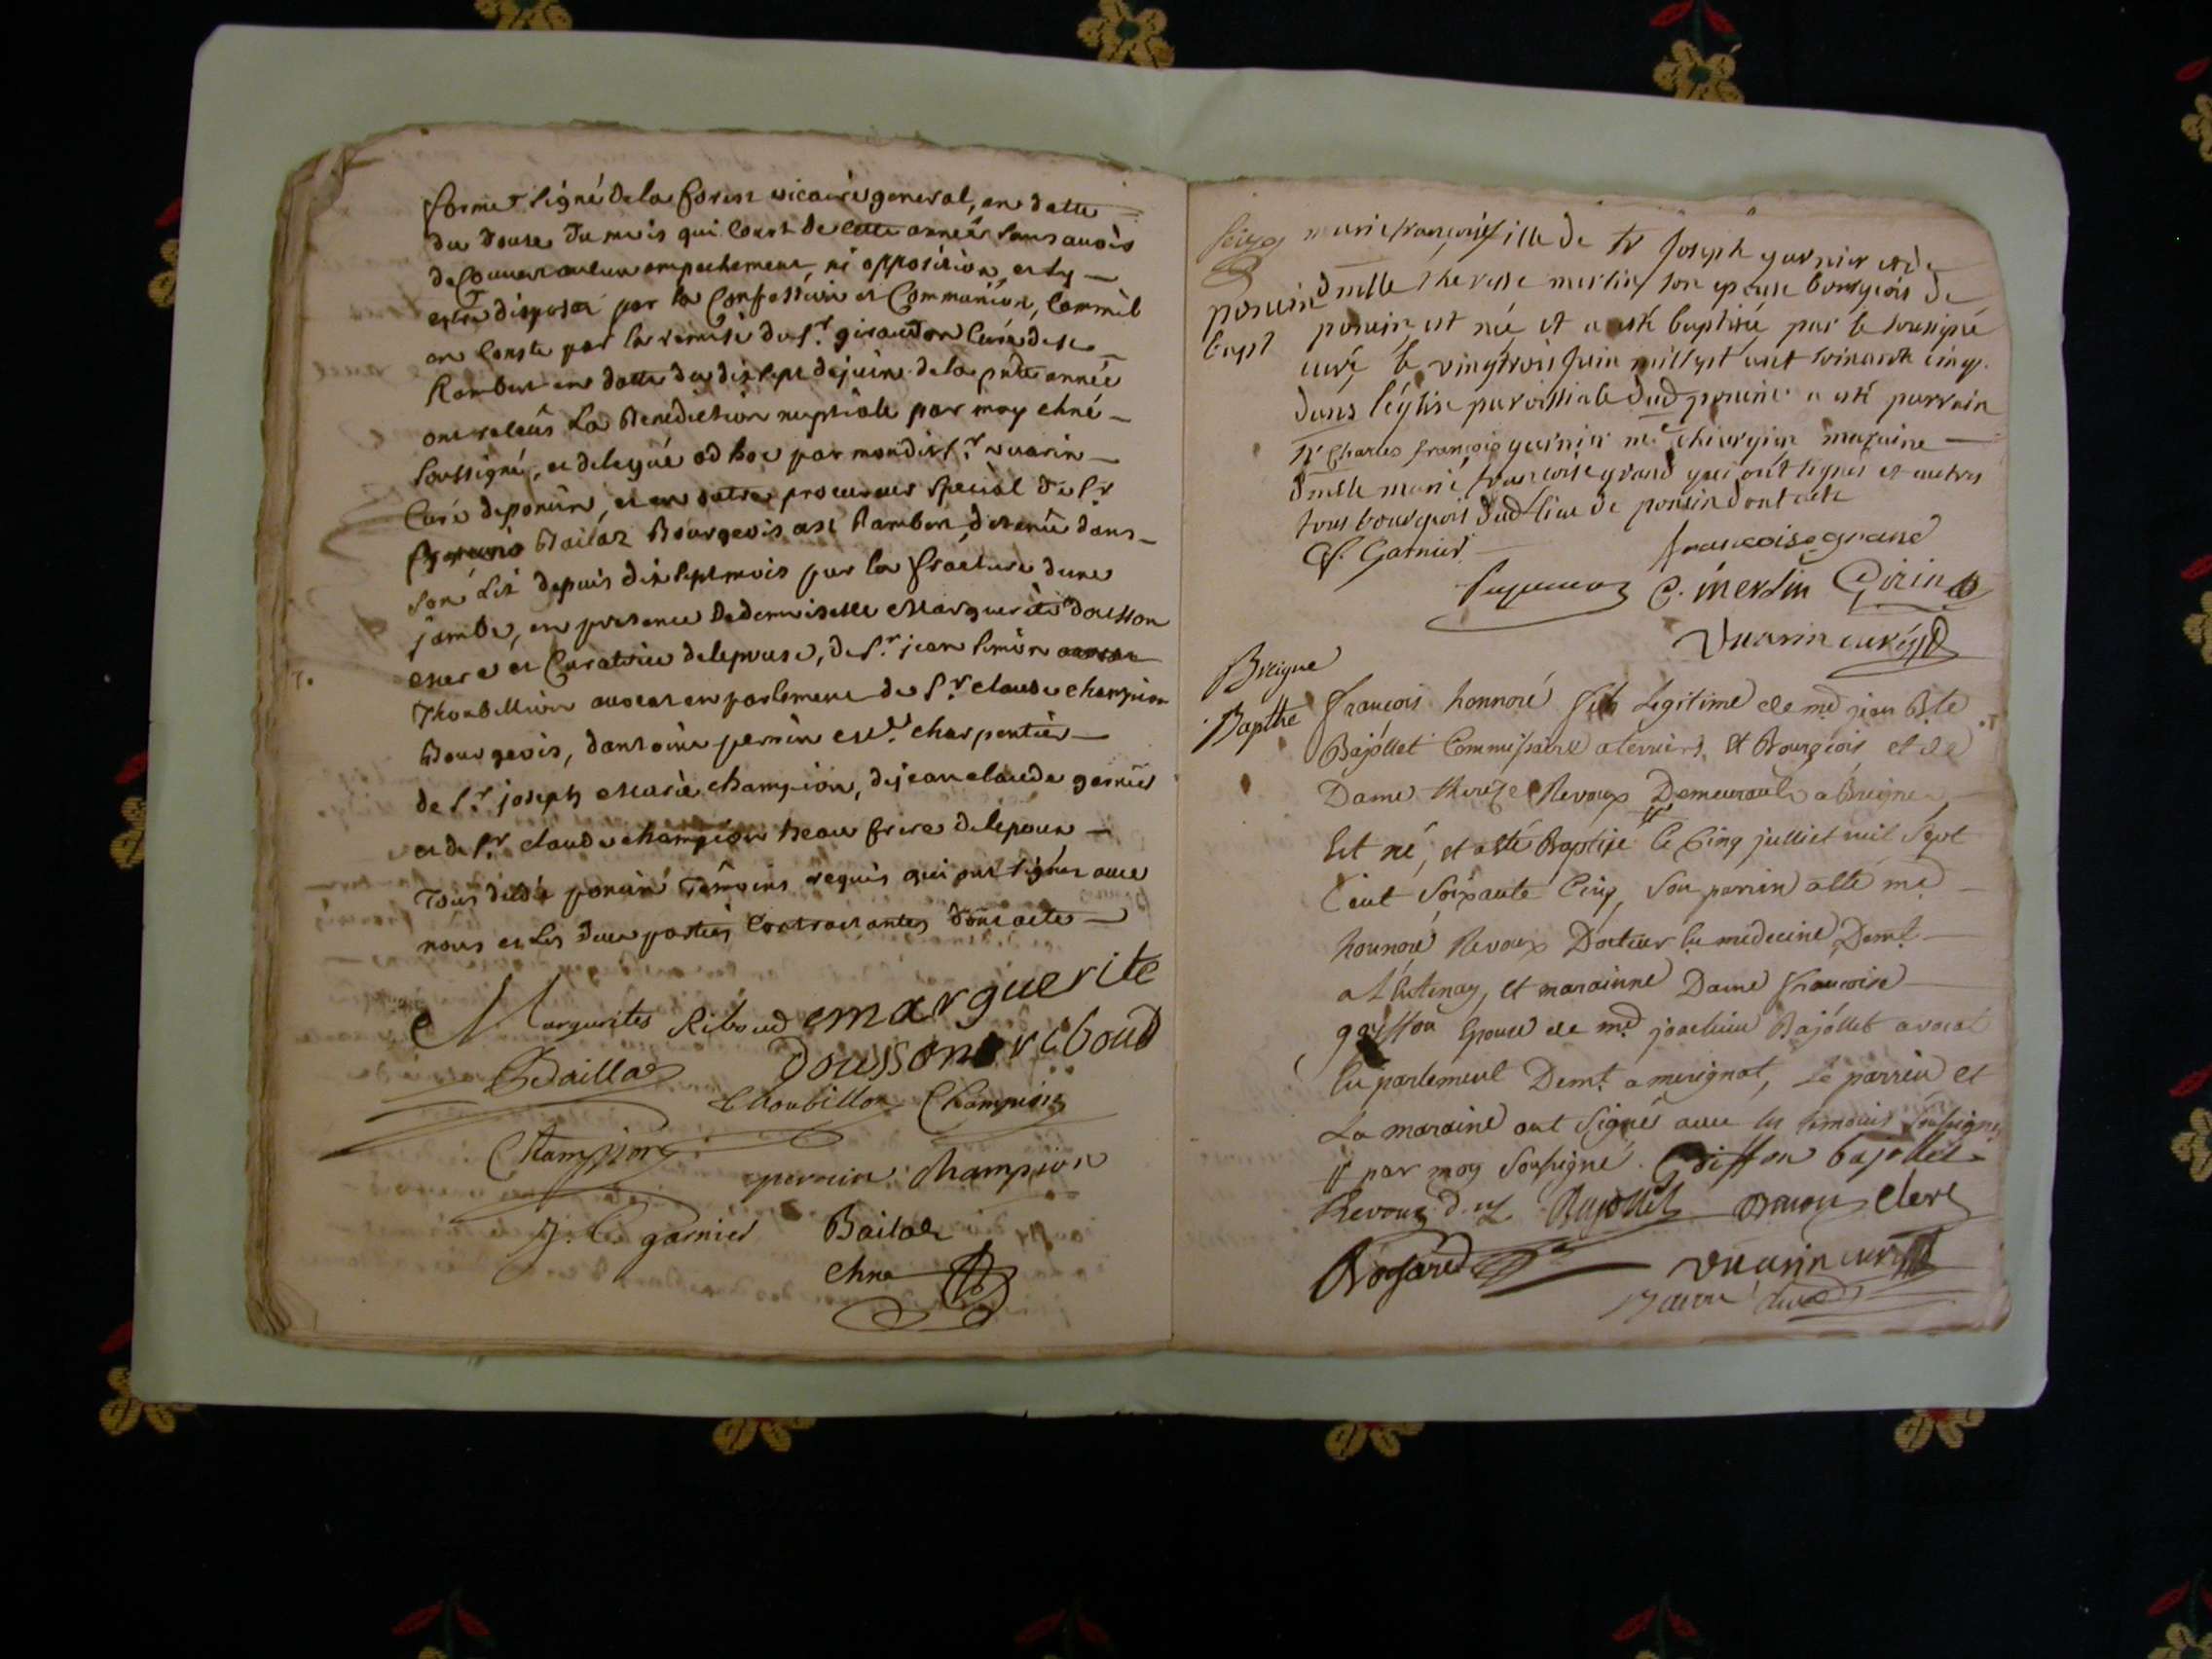 forme signé dela forest vicaire general, en datte
du douse du mois qui court de cette année sans avoir
decouvert aucun empechement, ni opposition, et s'y
estre disposéz par la Confession et Communion, comm'il
en conste par la remise du Sr. giraudon curé de st
Rambert en datte du dix sept dejuin dela pnte année
ont receüs La Benediction nuptiale par moy chne
soussigné, et delegué ad hoc par mondit Sr. vuarin
Curé deponcin, et en outre procureur special de Sr
Bailat Bourgeois a st Rambert, detenü dans
son Lit depuis dix sept mois par la fracture dune
jambe, en presence de demoiselle Marguerite dousson
mere et Curatrice delepouse, de Sr. jean simon
Thoubillion avocat en parlement de Sr claude champion
Bourgeois, dantoine perrin md. charpentier
de Sr joseph Marie champion, de jean claude garnier
et de Sr claude champion beau frere de lepoux
Tous dudit poncin Temoins requis qui ont signéz avec
nous et Les deux parties Contractantes dont acte
Margurites Riboud marguerite
Bailla doussone riboud
thoubillon Champion
Champion
perrin Champion
J. C garnier Bailat
chne
poncin
bapt
marie françoise fille de Sr Joseph garnier et de
dmlle therese merlin son epouse bourgeois de
poncin est née et a esté baptisée par le soussigné
curé le vingtrois juin mil sept cent soixante cinq.
dans l'église paroissiale dud poncin a esté parrain
Sr Charles françois garnier me chirurgien maraine
dmlle marie françoise grand qui ont signés et autres
tous bourgeois dud lieu de poncin dont acte
C f. Garnier françoise grand
C. merlin Girin
Vuarin curé
Breigne
Bapthe
françois honnoré fils Legitime de md jean Bte
Bajollet Commissaire a terriers, et Bourgeois, et de
Dame thereze Revoux Demeurants a Breigne,
Est né, et a été Baptisé le Cinq julliet mil sept
Cent soixante Cinq, son parrin a été md
honnoré Revoux Docteur en medecine Demt.
a Lentenay, et marainne Dame françoise
griffon Epouse de md joachim Bajollet avocat
En parlement Demt. a merignat, Le parrin et
La maraine ont signés avec les temoins soussignés
# par moy soussigné. Griffon bajollet
Revoux d. m. Bajollet clerc
vuarin curé